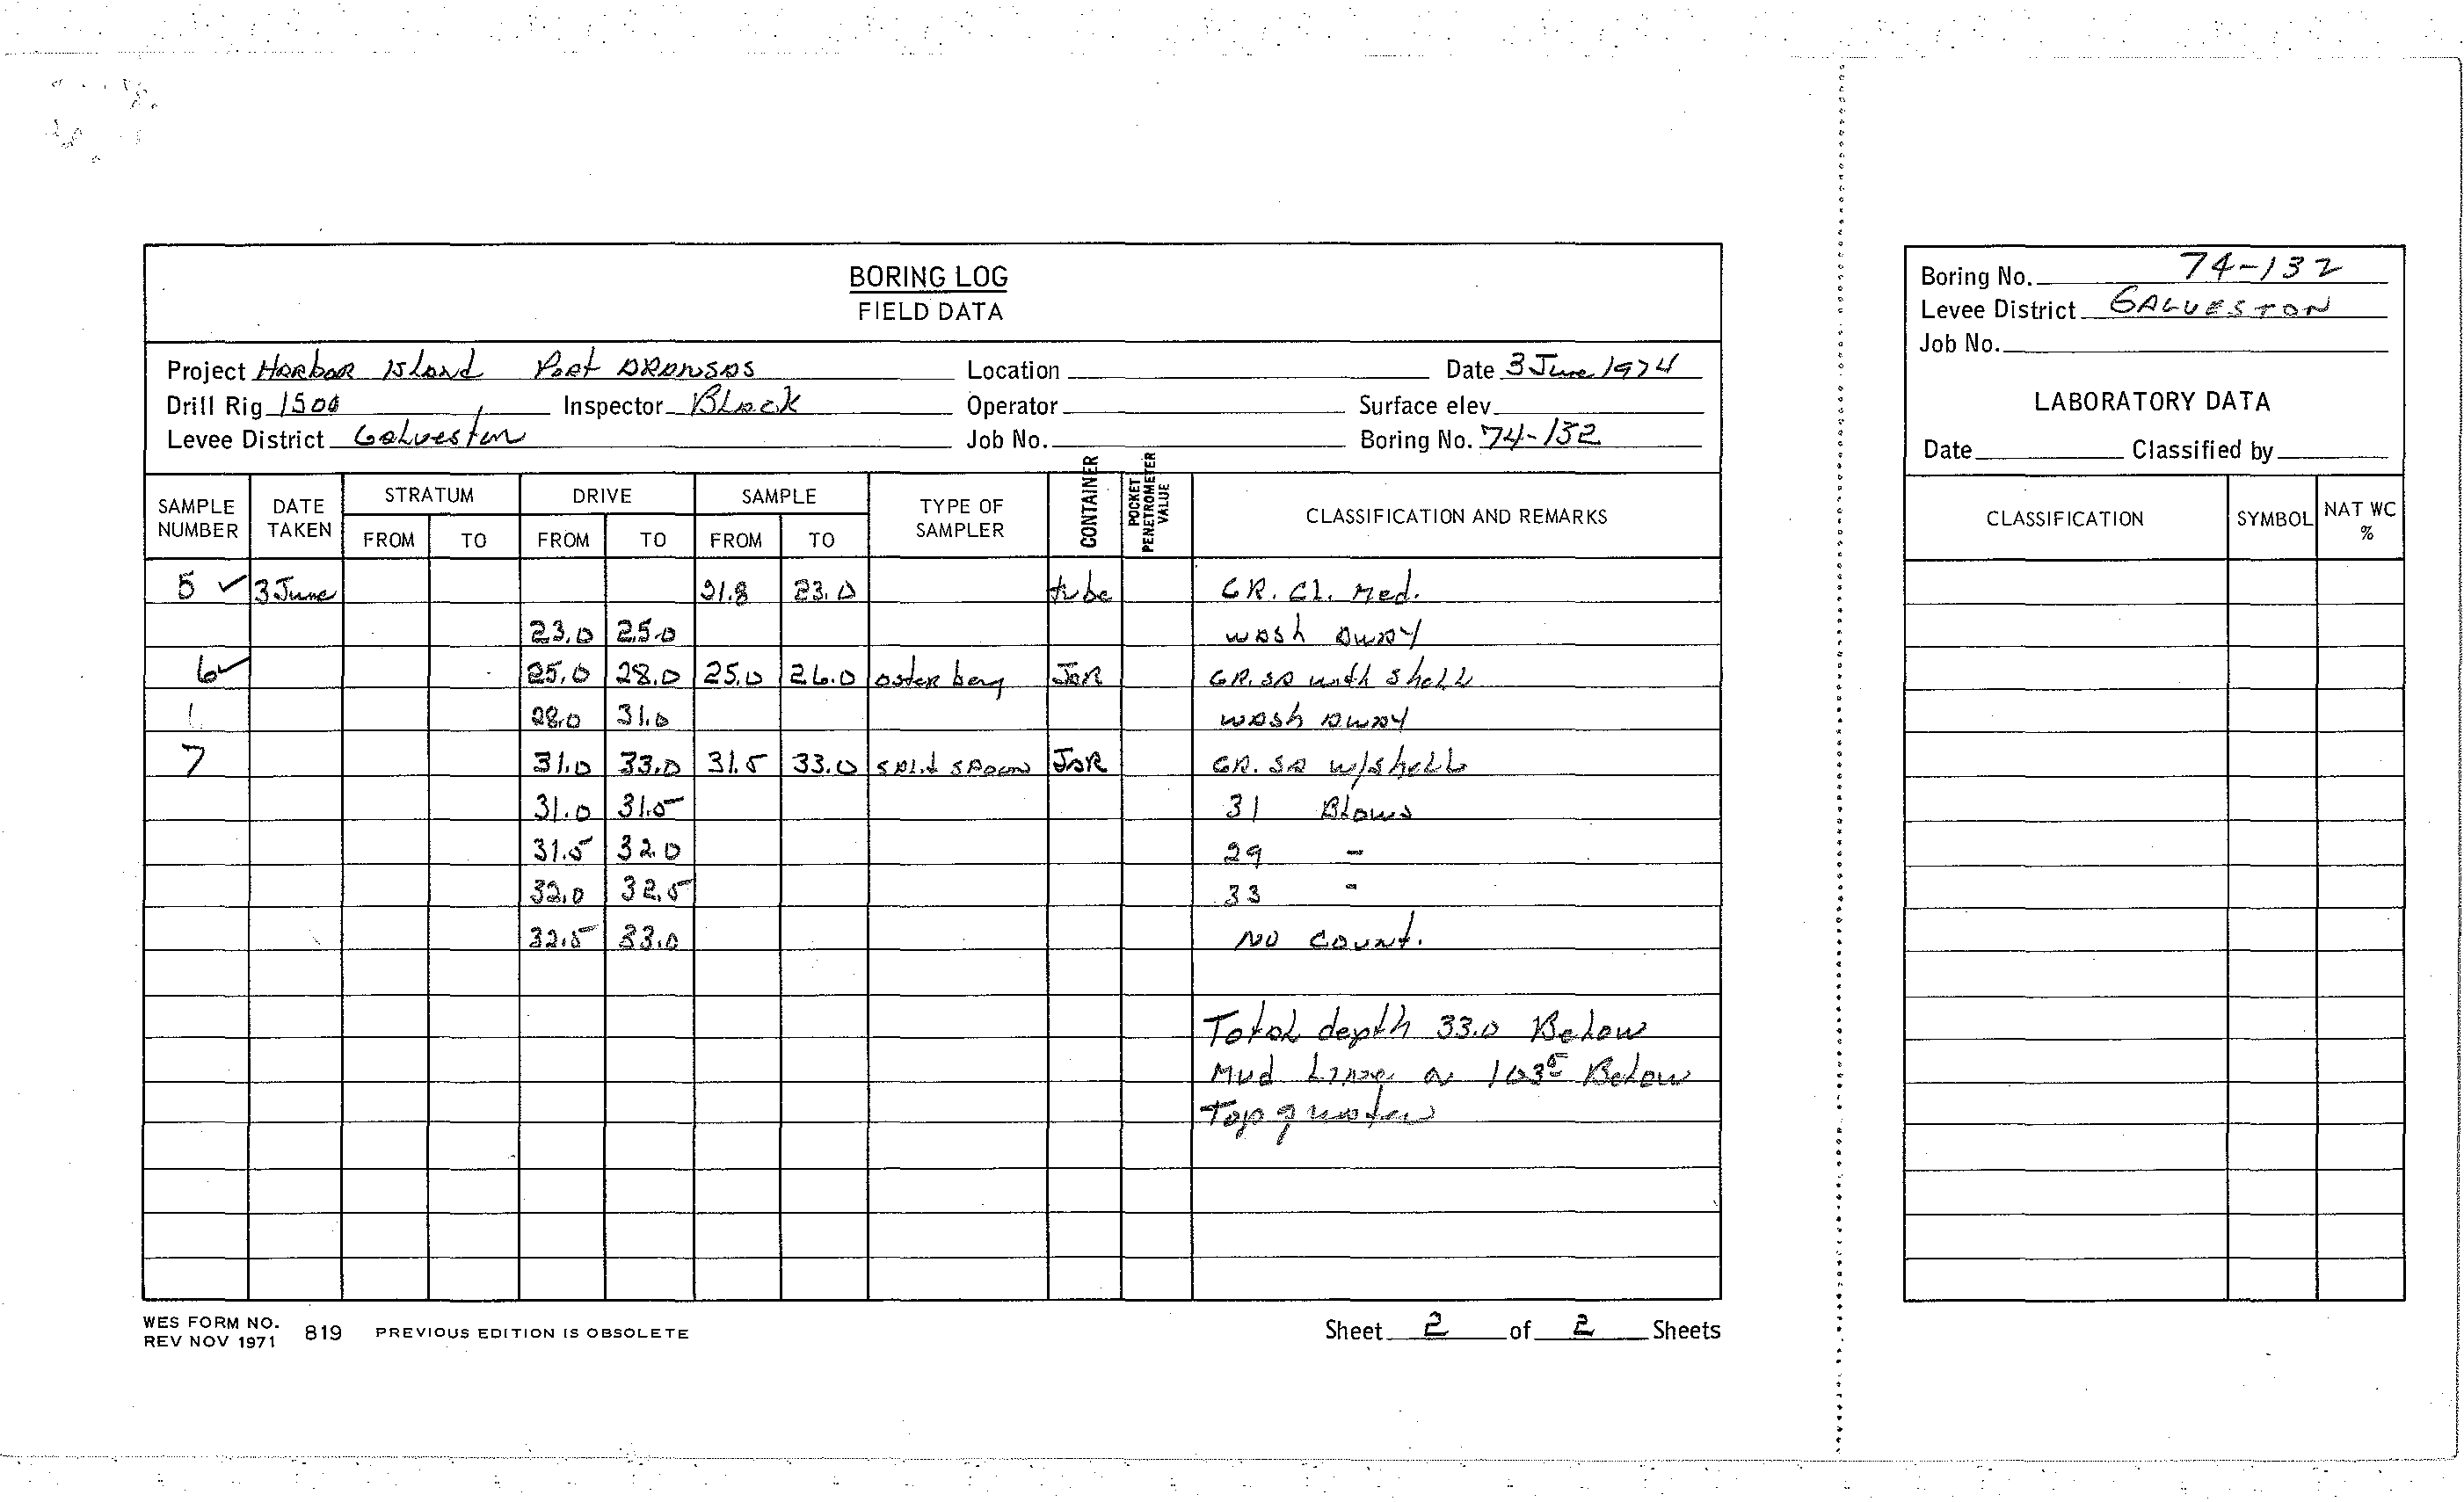 BORING LOG
FIELD DATA
Project Harbor Island Port Aransas Location Date 3 June 1974
Drill Rig 1500 Inspector Black Operator Surface elev.
Levee District Galveston Job No. Boring No. 74-132
SAMPLE NUMBER DATE TAKEN STRATUM FROM TO DRIVE FROM TO SAMPLE FROM TO TYPE OF SAMPLER CONTAINER POCKET PENETROMETER VALUE CLASSIFICATION AND REMARKS
5 ✓ 3 June 21.8 23.0 tube GR. Cl. Med.
23.0 25.0 wash away
6 ✓ 25.0 28.0 25.0 26.0 osterberg Jar GR. SA with shell
28.0 31.0 wash away
7 31.0 33.0 31.5 33.0 split spoon Jar GR. SA w/shell
31.0 31.5 31 Blows
31.5 32.0 29 -
32.0 32.5 33 -
32.5 33.0 No count.
Total depth 33.0 Below
Mud Line 103⁵ Below
Top of water
WES FORM NO. 819 PREVIOUS EDITION IS OBSOLETE
REV NOV 1971
Sheet 2 of 2 Sheets
Boring No. 74-132
Levee District GALVESTON
Job No.
LABORATORY DATA
Date Classified by
CLASSIFICATION SYMBOL NAT WC %